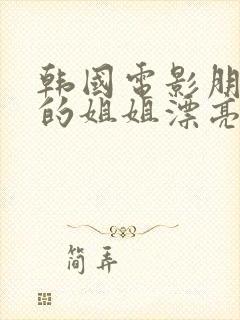 韩國電影朋
的姐姐漂亮
简弄